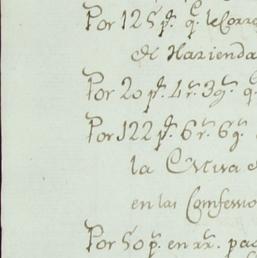 Por 125 p.s q.e le Corr
de Hazienda
Por 20 p.s 4 r.s 3 g.s q.
Por 122 p.s 6 r.s 6 g.s
la Cutiva
en las Confessio
Por 50 p.s en rr.s pa